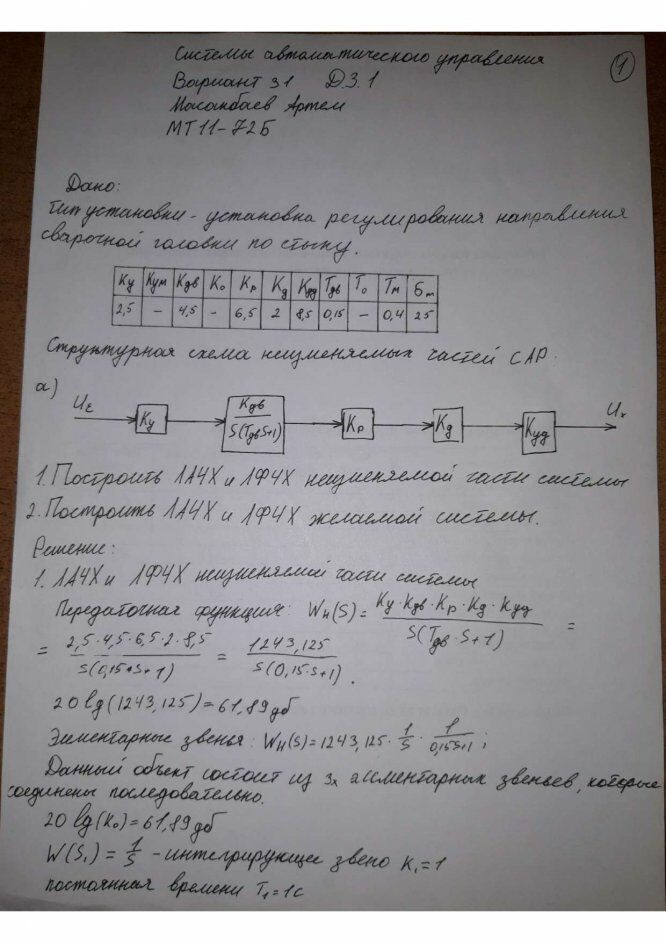 Системы автоматического управления
1
Вариант 31 Д.З.1
Масакбаев Артем
МТ11-72Б
Дано:
Тип установки - установка регулирования направления
сварочной головки по стыку.
Kу Kум Kдв Kо Kр Kд Kуд Tдв Tо Tм σm
2,5 - 4,5 - 6,5 2 8,5 0,15 - 0,4 25
Структурная схема неизменяемых частей САР.
а)
Uε Kу Kдв/S(TдвS+1) Kр Kд Kуд Ur
1. Построить ЛАЧХ и ЛФЧХ неизменяемой части системы
2. Построить ЛАЧХ и ЛФЧХ желаемой системы.
Решение:
1. ЛАЧХ и ЛФЧХ неизменяемой части системы
Передаточная функция: Wн(S) = Kу·Kдв·Kр·Kд·Kуд/S(Tдв·S+1) =
= 2,5·4,5·6,5·2·8,5/S(0,15·S+1) = 1243,125/S(0,15·S+1).
20lg(1243,125)=61,89дб
Элементарные звенья: Wн(S)=1243,125·1/S·1/0,15S+1;
Данный объект состоит из 3х элементарных звеньев, которые
соединены последовательно.
20lg(K0)=61,89дб
W(S1)=1/S - интегрирующее звено K1=1
постоянная времени T1=1с